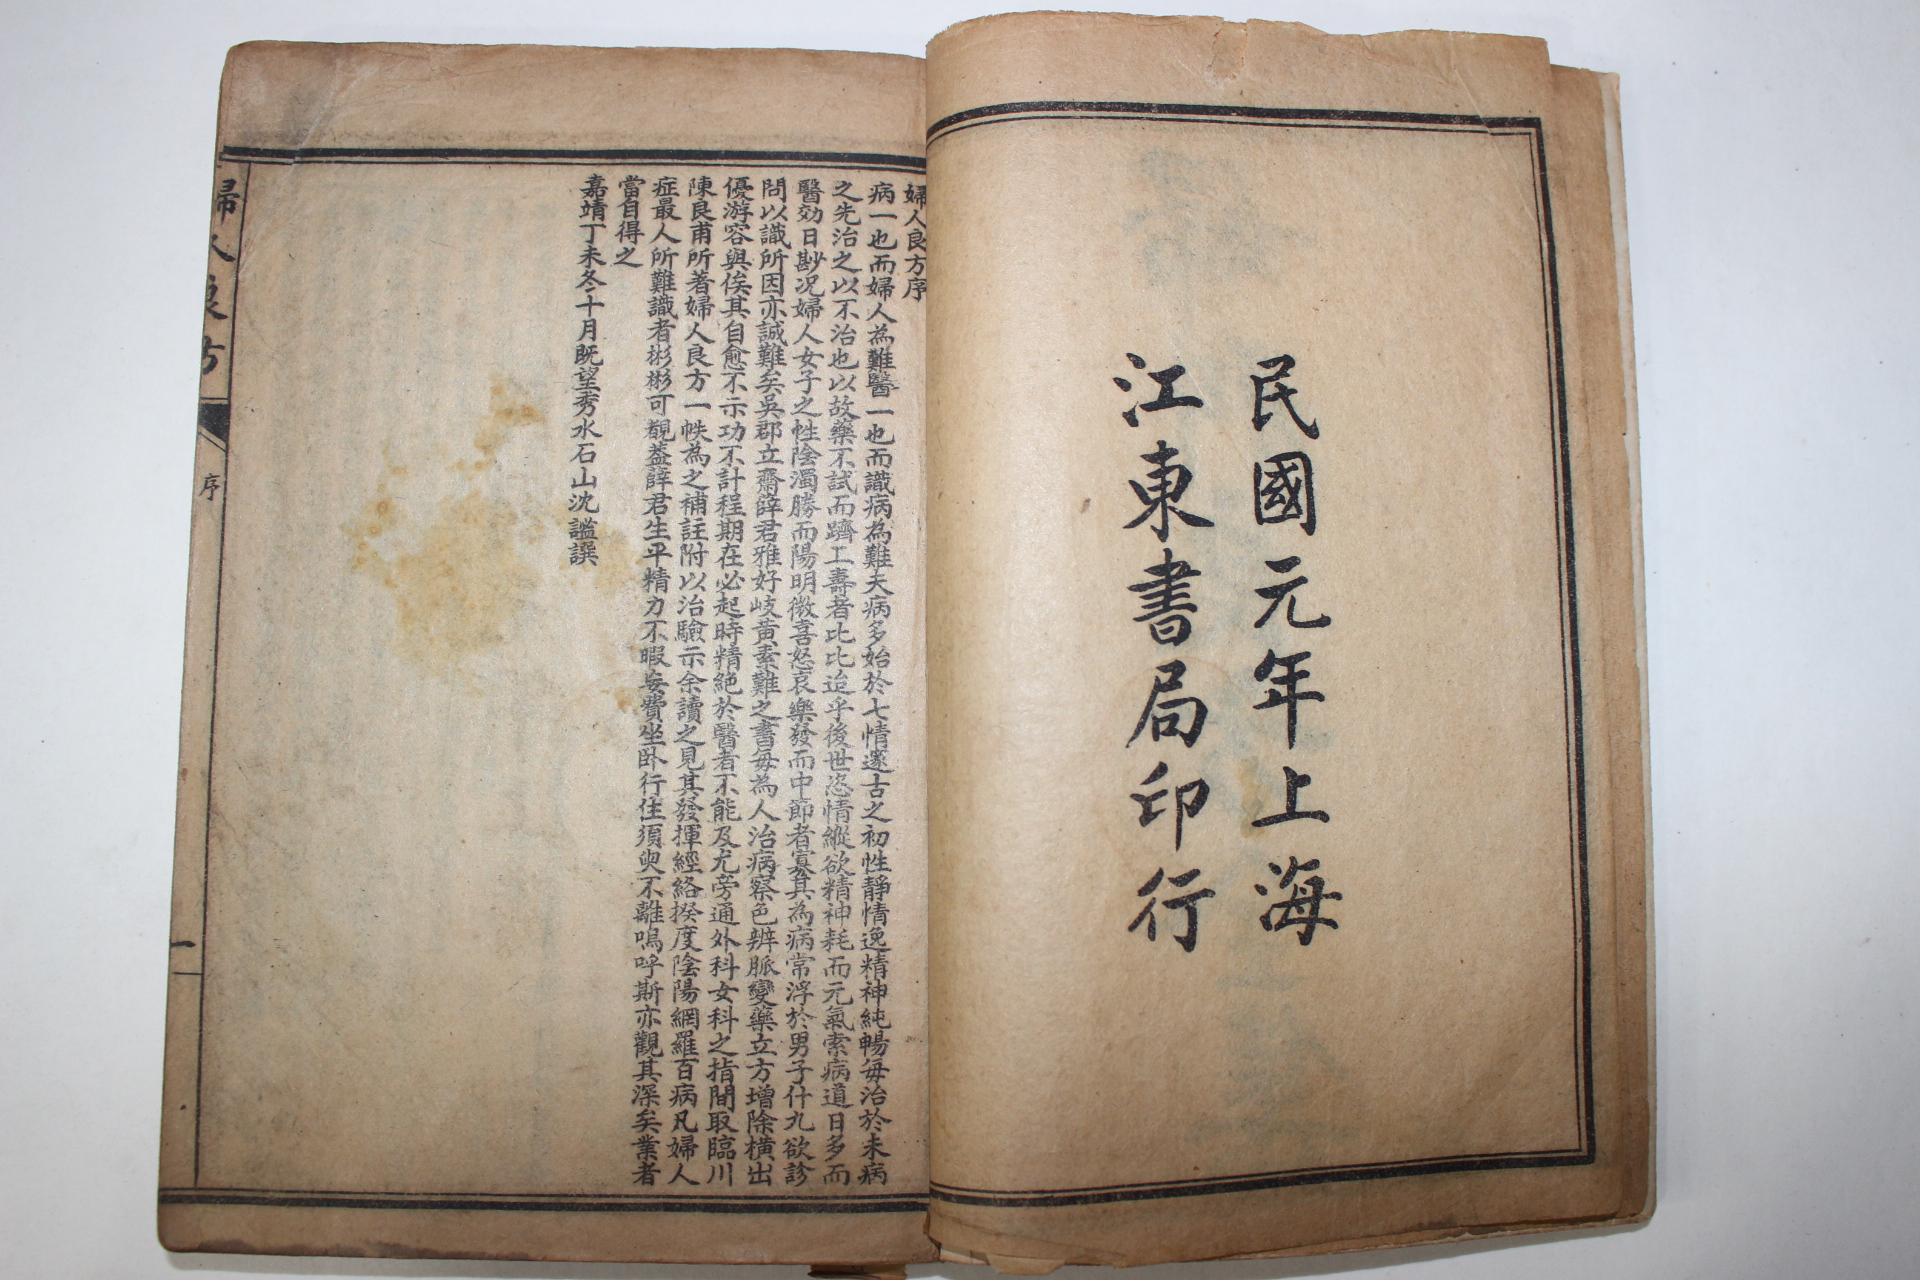 民國元年上海
江東書局印行
婦人良方序
病一也而婦人為難醫一也而識病為難夫病多始於七情邃古之初性靜情逸精神純暢每治於未病
之先治之以不治也以故藥不試而躋工壽者比比迨乎後世恣情縱欲精神耗而元氣索病道日多而
醫効日尠况婦人女子之性陰濁勝而陽明微喜怒哀樂發而中節者寡其為病常浮於男子什九欲診
問以識所因亦誠難矣吳郡立齋薛君雅好岐黄素難之書每為人治病察色辨脈變藥立方增除橫出
優游容與俟其自愈不示功不計程期在必起時精絶於醫者不能及尤旁通外科女科之指間取臨川
陳良甫所著婦人良方一帙為之補註附以治驗示余讀之見其發揮經絡揆度陰陽網羅百病凡婦人
症最人所難識者彬彬可覩葢薛君生平精力不暇妄費坐卧行住須臾不離嗚呼斯亦觀其深矣業者
當自得之
嘉靖丁未冬十月既望秀水石山沈謐譔
婦人良方
序
一